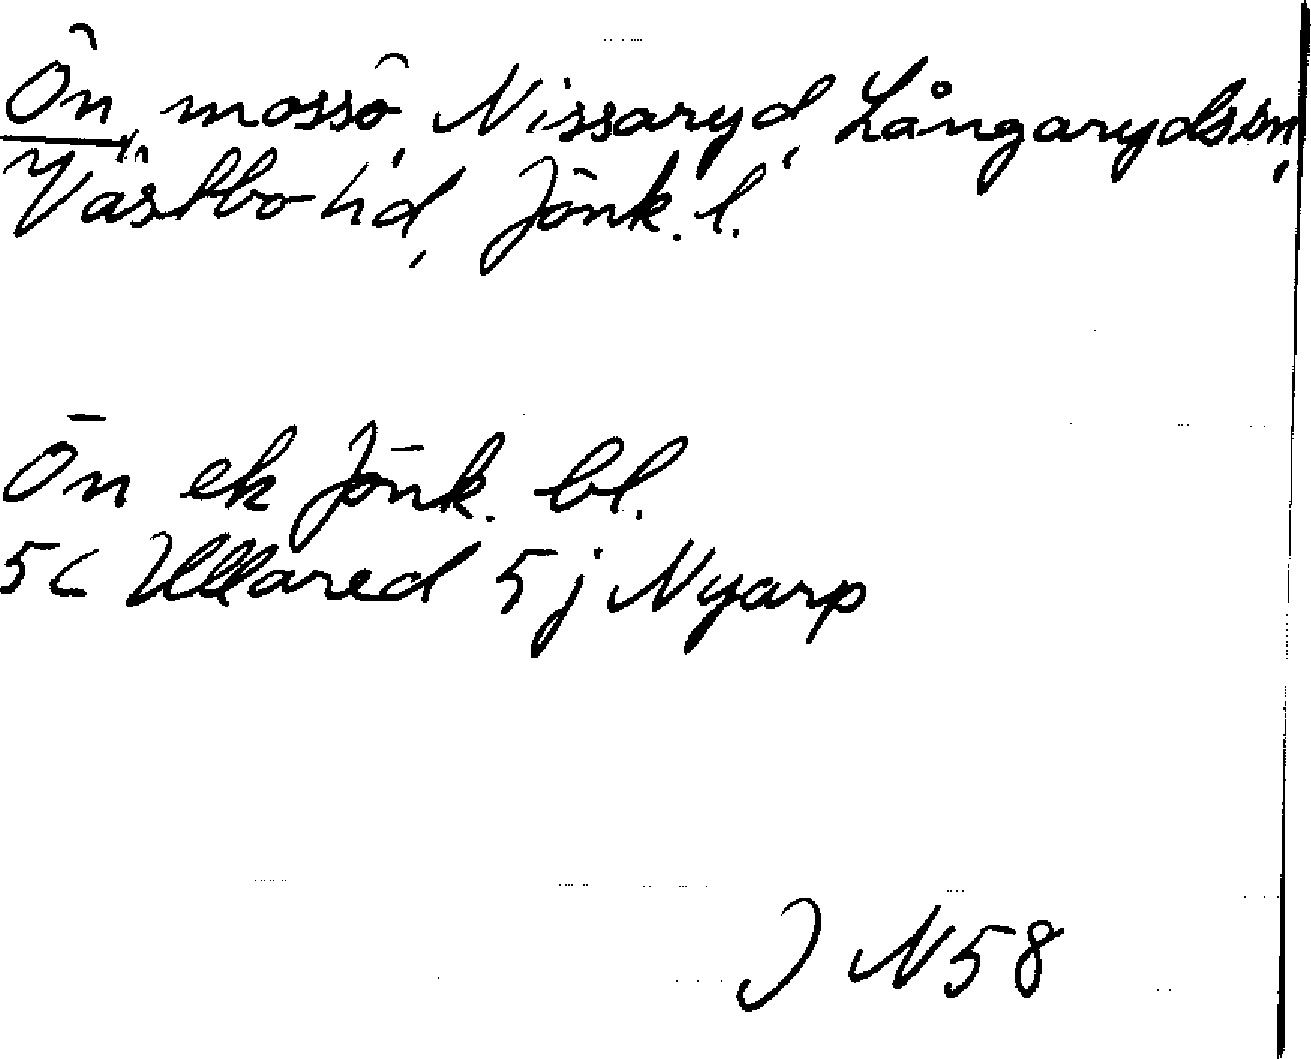 Ön, mossö, Nissaryd, Långarydssn,
Västbo hd, Jönk. l.
Ön ek Jönk. bl.
5c Ullared 5j Nyarp
J N 58